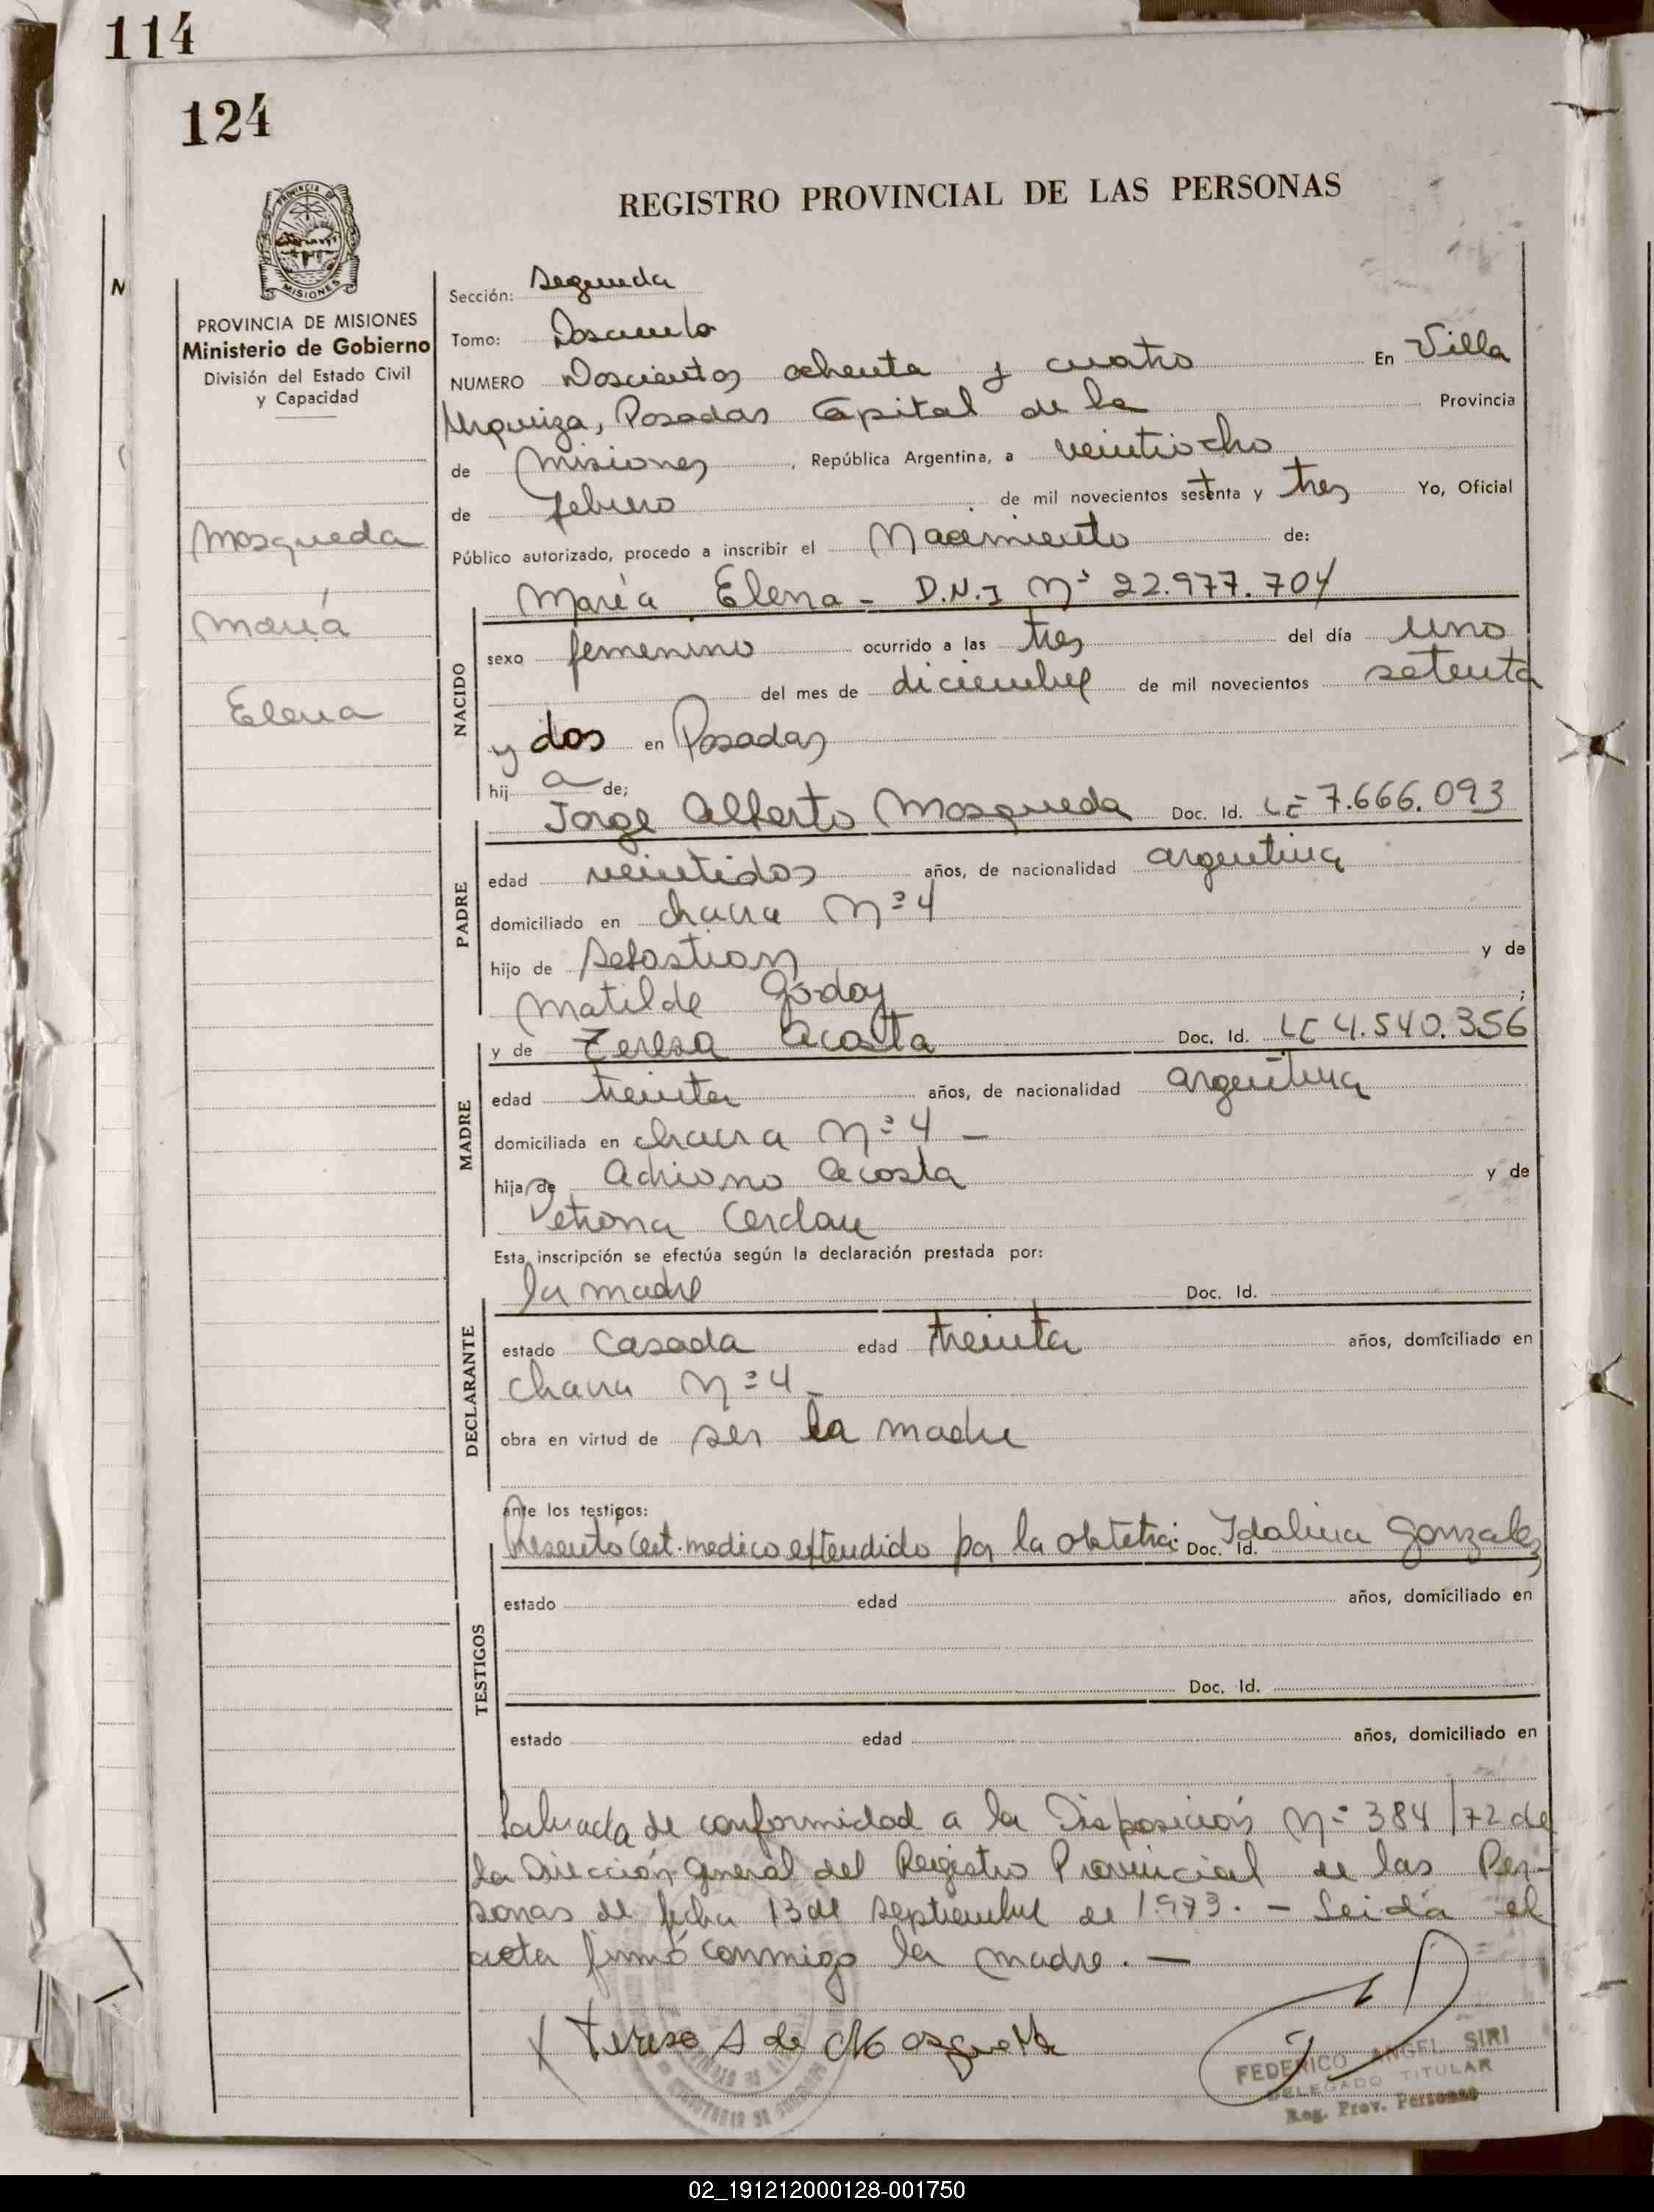 114
124
REGISTRO PROVINCIAL DE LAS PERSONAS
PROVINCIA DE
MISIONES
PROVINCIA DE MISIONES
Ministerio de Gobierno
División del Estado Civil
y Capacidad
Mosqueda
María
Elena
Sección: Segunda
Tomo:
NUMERO Doscientos ochenta y cuatro En Villa
Urquiza, Posadas Capital de la Provincia
de Misiones, República Argentina, a veintiocho
de febrero de mil novecientos setenta y tres Yo, Oficial
Público autorizado, procedo a inscribir el Nacimiento de:
María Elena - D.N.I Nº 22.977.704
NACIDO
sexo femenino ocurrido a las tres del día uno
del mes de diciembre de mil novecientos setenta
y dos en Posadas
hij a de;
Jorge Alberto Mosqueda Doc. Id. LE 7.666.093
PADRE
edad veintidos años, de nacionalidad argentina
domiciliado en chacra Nº 4
hijo de Sebastian y de
Matilde Godoy ;
y de Teresa Acosta Doc. Id. LC 4.540.356
MADRE
edad treinta años, de nacionalidad argentina
domiciliada en chacra Nº 4 —
hija de Adriano Acosta y de
Petrona Cerdan
Esta inscripción se efectúa según la declaración prestada por:
la madre Doc. Id.
DECLARANTE
estado casada edad treinta años, domiciliado en
chacra Nº 4 -
obra en virtud de ser la madre
ante los testigos:
Presentó Cert. medico extendido por la obstetra: Doc. Id. Idalina Gonzalez
TESTIGOS
estado edad años, domiciliado en
Doc. Id.
estado edad años, domiciliado en
Labrada de conformidad a la Disposición Nº 384/72 de
la Dirección General del Registro Provincial de las Per-
sonas de fecha 13 de septiembre de 1973. - Leida el
acta firmó conmigo la madre. —
Teresa A de Mosqueda
FEDERICO ANGEL SIRI
DELEGADO TITULAR
Reg. Prov. Personas
02_191212000128-001750